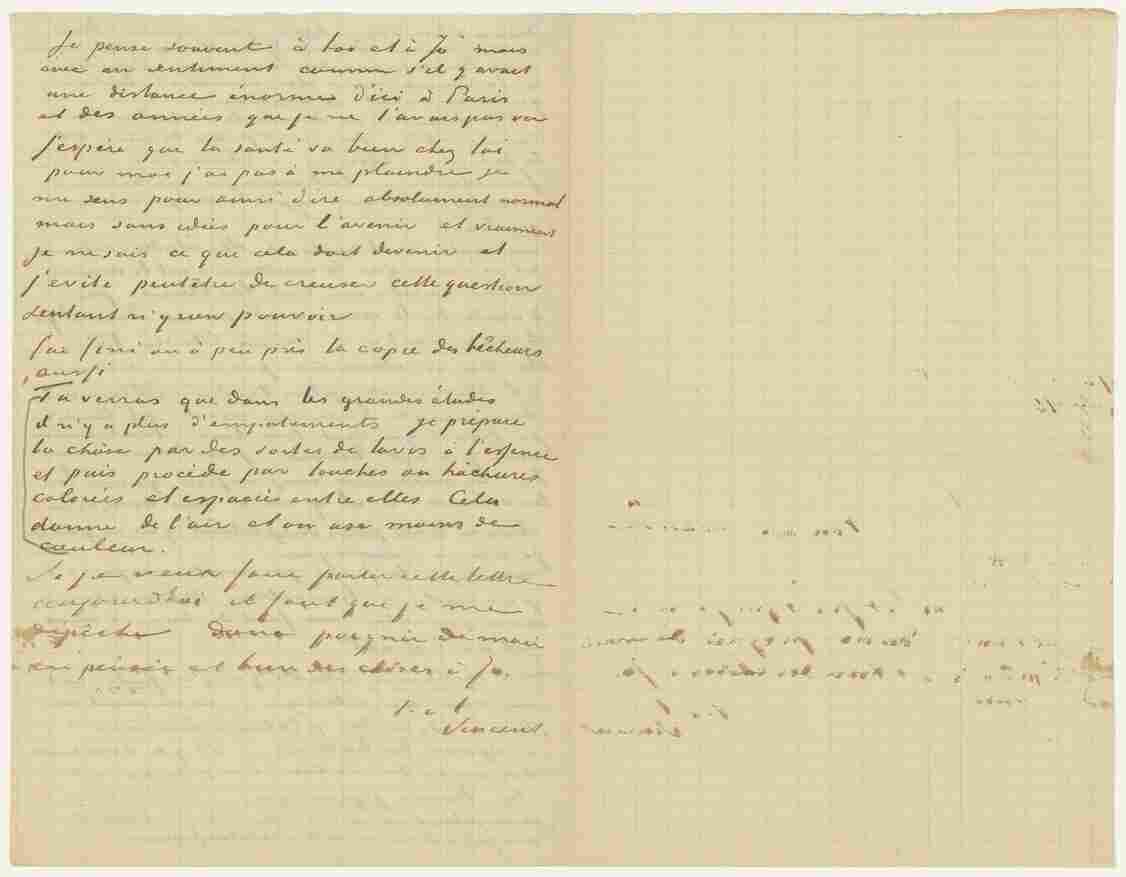 Je pense souvent à toi et à Jo mais
avec un sentiment comme s'il y avait
une distance énorme d'ici à Paris
et des années que je ne t'avais pas vu
j'espère que ta santé va bien chez toi
pour moi j'ai pas à me plaindre je
me sens pour ainsi dire absolument normal
mais sans idées pour l'avenir et vraiment
je ne sais ce que cela doit devenir et
j'evite peutêtre de creuser cette question
sentant n'y rien pouvoir
J'ai fini ou à peu près la copie des bêcheurs
aussi
Tu verras que dans les grandes études
il n'y a plus d'empatements je prépare
la chôse par des sortes de lavis à l'essence
et puis procède par touches ou hâchures
colorées et espacées entre elles Cela
donne de l'air et on use moins de
couleur.
Si je veux faire partir cette lettre
aujourd'hui il faut que je me
dépêche donc poignée de main
en pensée et bien des chôses à Jo.
t. à t
Vincent.